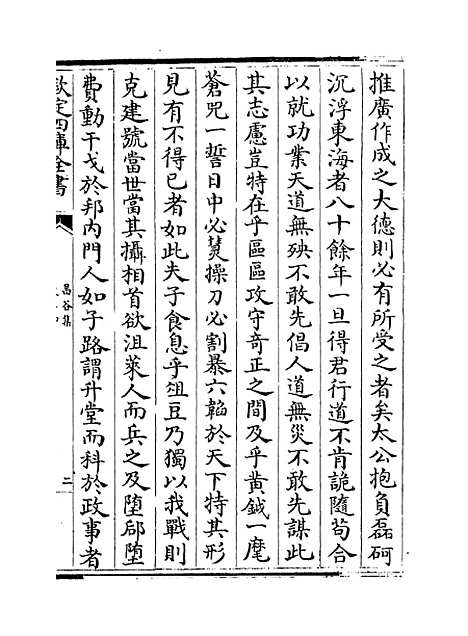 推廣作成之大德則必有所受之者矣太公抱負磊砢
沉浮東海者八十餘年一旦得君行道不肯詭隨茍合
以就功業天道無殃不敢先倡人道無災不敢先謀此
其志慮豈特在乎區區攻守竒正之間及乎黄鉞一麾
蒼兕一誓日中必熭操刀必割暴六韜於天下特其形
見有不得已者如此夫子食息乎俎豆乃獨以我戰則
克建號當世當其攝相首欲沮萊人而兵之及墮郈墮
費動干戈於邦内門人如子路謂升堂而科於政事者
欽定四庫全書
昌谷集
二